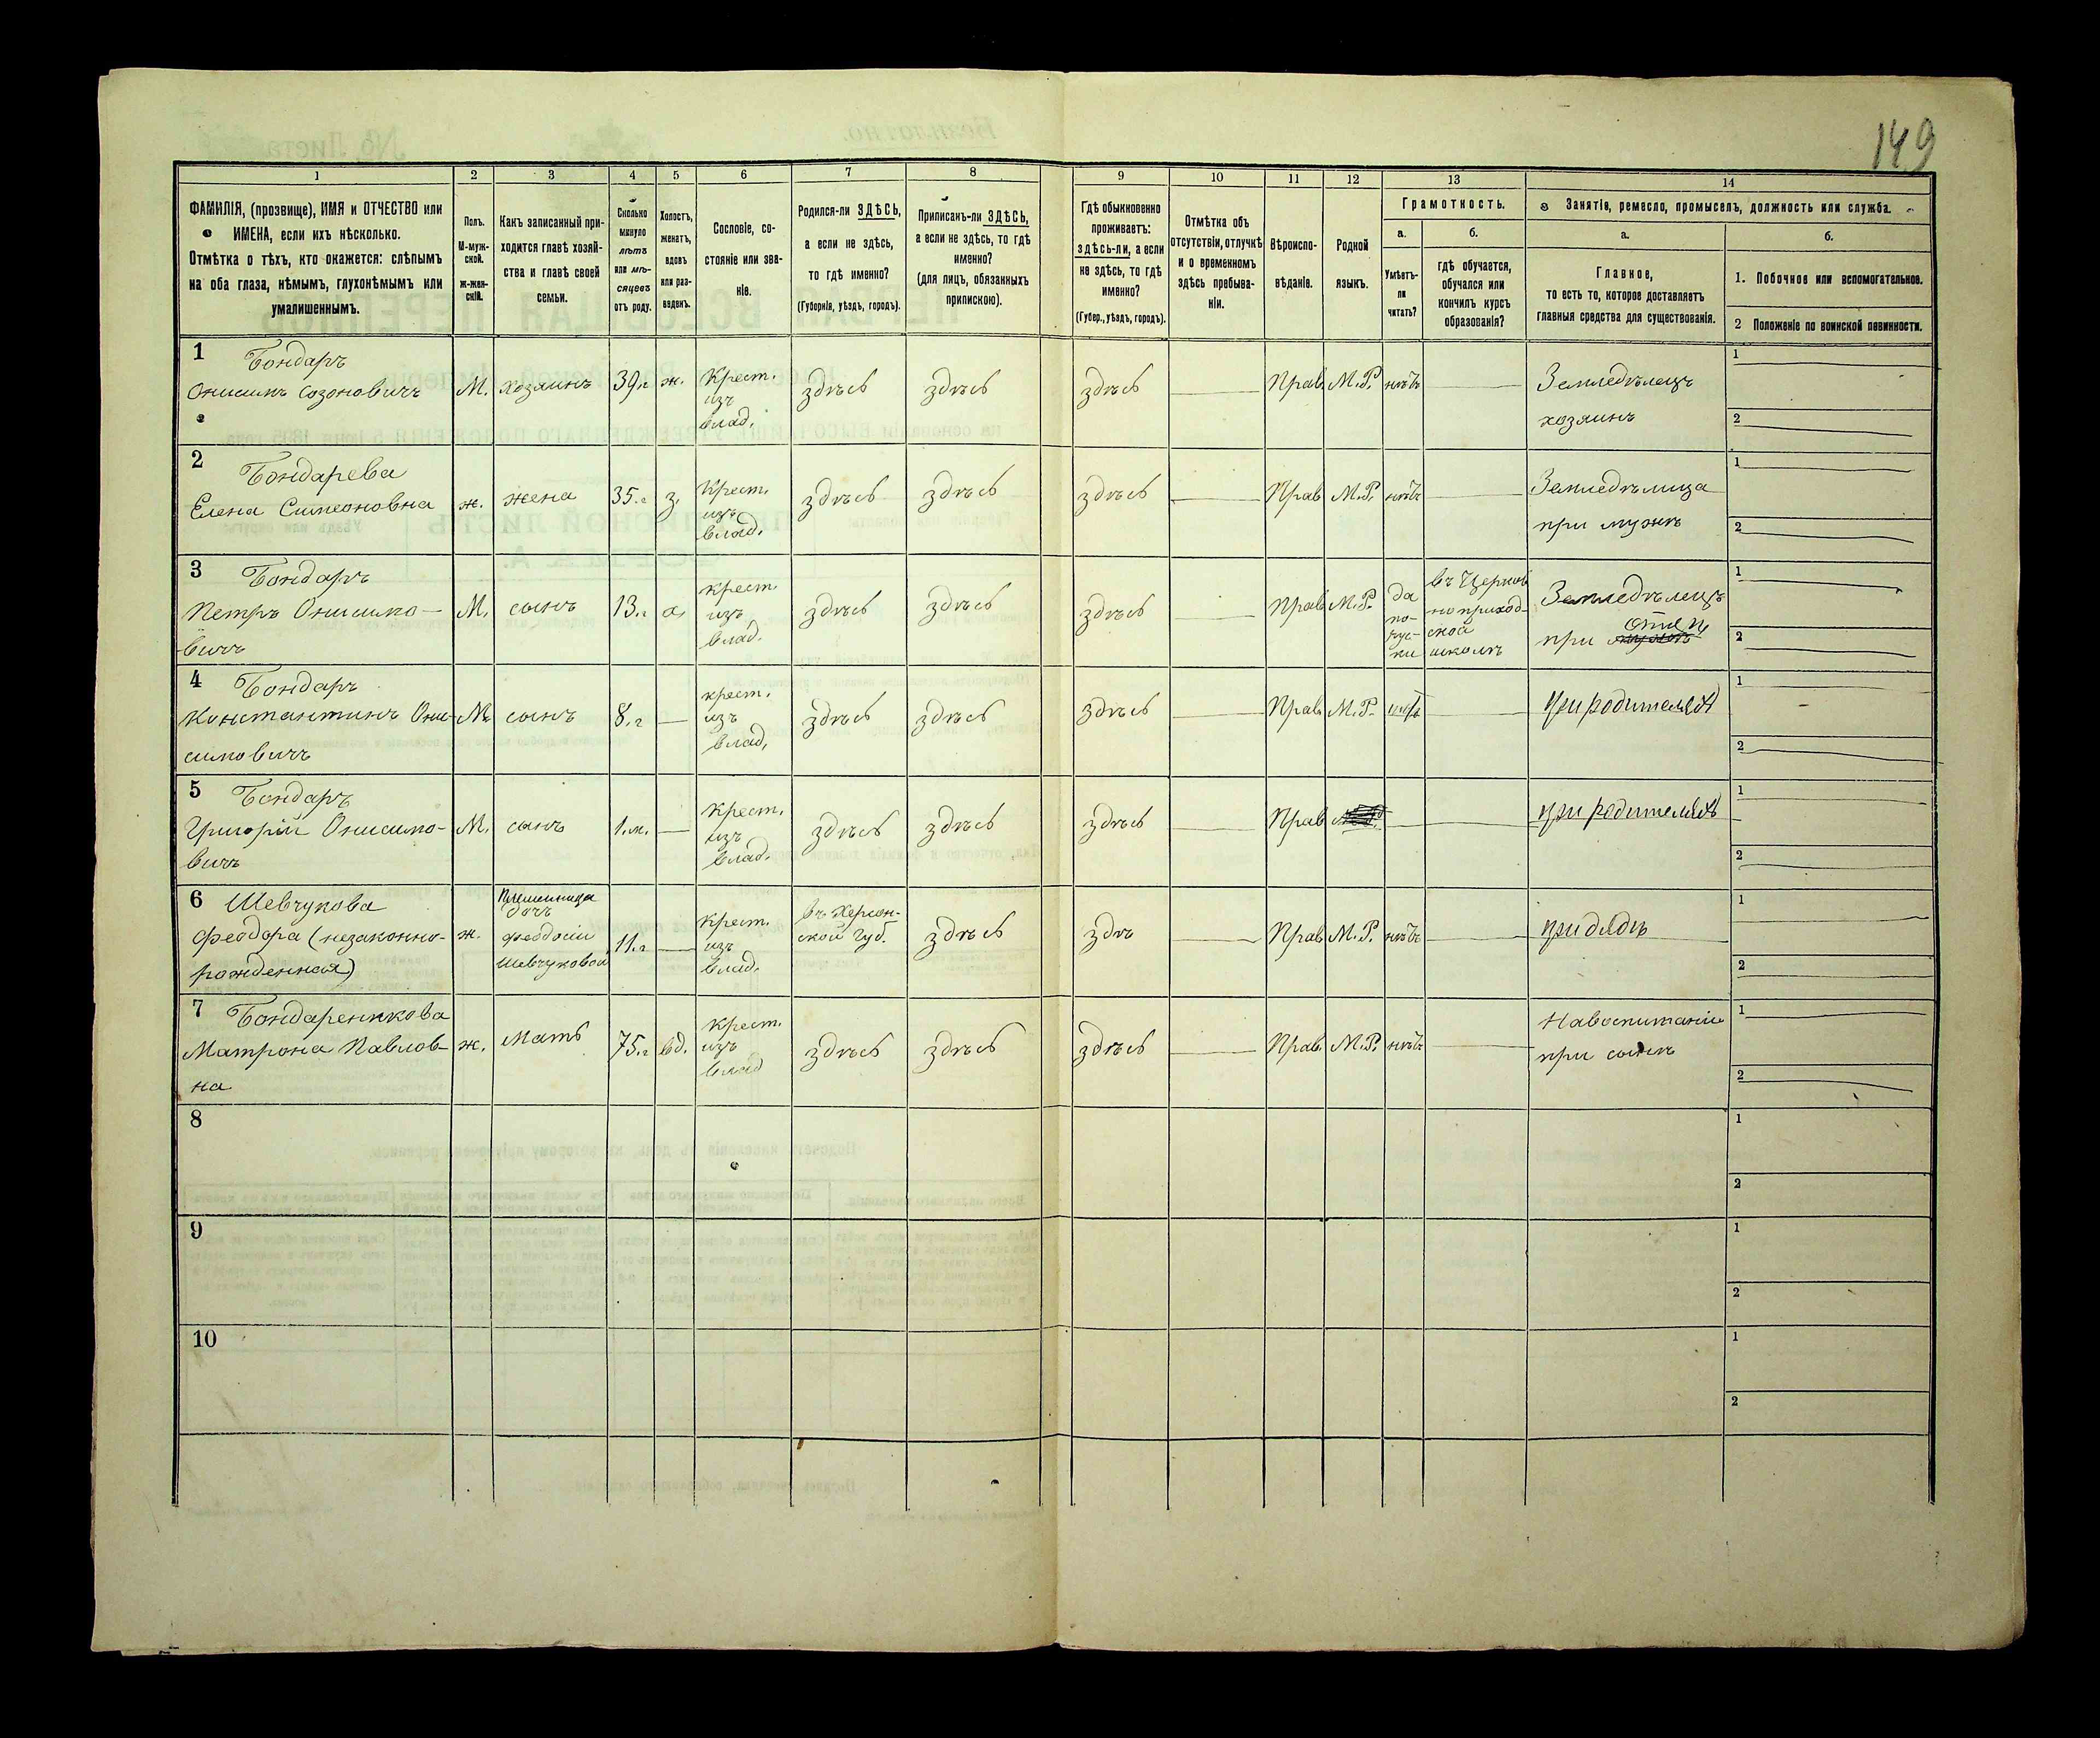 149
1 2 3 4 5 6 7 8 9 10 11 12 13 14
ФАМИЛІЯ, (прозвище), ИМЯ и ОТЧЕСТВО или
ИМЕНА, если ихъ нѣсколько.
Отмѣтка о тѣхъ, кто окажется: слѣпымъ
на оба глаза, нѣмымъ, глухонѣмымъ или
умалишеннымъ.
Полъ.
М-муж-
ской.
ж-жен-
скій.
Какъ записанный при-
ходится главѣ хозяй-
ства и главѣ своей
семьи.
Сколько
минуло
лѣтъ
или мѣ-
сяцевъ
отъ роду.
Холостъ,
женатъ,
вдовъ
или раз-
веденъ.
Сословіе, со-
стояніе или зва-
ніе.
Родился-ли ЗДѢСЬ,
а если не здѣсь,
то гдѣ именно?
(Губернія, уѣздъ, городъ).
Приписанъ-ли ЗДѢСЬ,
а если не здѣсь, то гдѣ
именно?
(для лицъ, обязанныхъ
припискою).
Гдѣ обыкновенно
проживаетъ:
здѣсь-ли, а если
не здѣсь, то гдѣ
именно?
(Губер., уѣздъ, городъ).
Отмѣтка объ
отсутствіи, отлучкѣ
и о временномъ
здѣсь пребыва-
ніи.
Вѣроиспо-
вѣданіе.
Родной
языкъ.
Грамотность.
а.
Умѣетъ-
ли
читать?
б.
гдѣ обучается,
обучался или
кончилъ курсъ
образованія?
Занятіе, ремесло, промыселъ, должность или служба.
а.
Главное,
то есть то, которое доставляетъ
главныя средства для существованія.
б.
1. Побочное или вспомогательное.
2 Положеніе по воинской повинности.
1 Бондарь
Онисимъ Созоновичъ
М.
хозяинъ
39.г
ж.
Крест.
изъ
влад.
здѣсь
здѣсь
здѣсь
Прав.
М.Р.
нѣтъ
Земледѣлецъ
хозяинъ
1
2
2 Бондарева
Елена Симеоновна
ж.
жена
35.г
з.
Крест.
изъ
влад.
здѣсь
здѣсь
здѣсь
Прав.
М.Р.
нѣтъ
Земледѣлица
при мужѣ
1
2
3 Бондарь
Петръ Онисимо-
вичъ
М.
сынъ
13.г
х.
крест.
изъ
влад.
здѣсь
здѣсь
здѣсь
Прав.
М.Р.
да
по-
рус-
ки
въ Церков
но приход-
ской
школѣ
Земледѣлецъ
при отцѣ
1
2
4 Бондарь
Константинъ Они-
симовичъ
М.
сынъ
8.г
крест.
изъ
влад.
здѣсь
здѣсь
здѣсь
Прав.
М.Р.
нѣтъ
при родителяхъ
1
2
5 Бондарь
Григорій Онисимо-
вичъ
М.
сынъ
1.м.
крест.
изъ
влад.
здѣсь
здѣсь
здѣсь
Прав
при родителяхъ
1
2
6 Шевчукова
Феодора (незаконно-
рожденная)
ж.
Племяница
дочь
Феодосіи
Шевчуковой
11.г
крест.
изъ
влад.
въ Херсон-
ской Губ.
здѣсь
здѣ
Прав.
М.Р.
нѣтъ
при дядѣ
1
2
7 Бондаренкова
Матрона Павлов-
на
ж.
мать
75.г
вд.
крест.
изъ
влад
здѣсь
здѣсь
здѣсь
Прав.
М.Р.
нѣтъ
На воспитаніи
при сынѣ
1
2
8
1
2
9
1
2
10
1
2